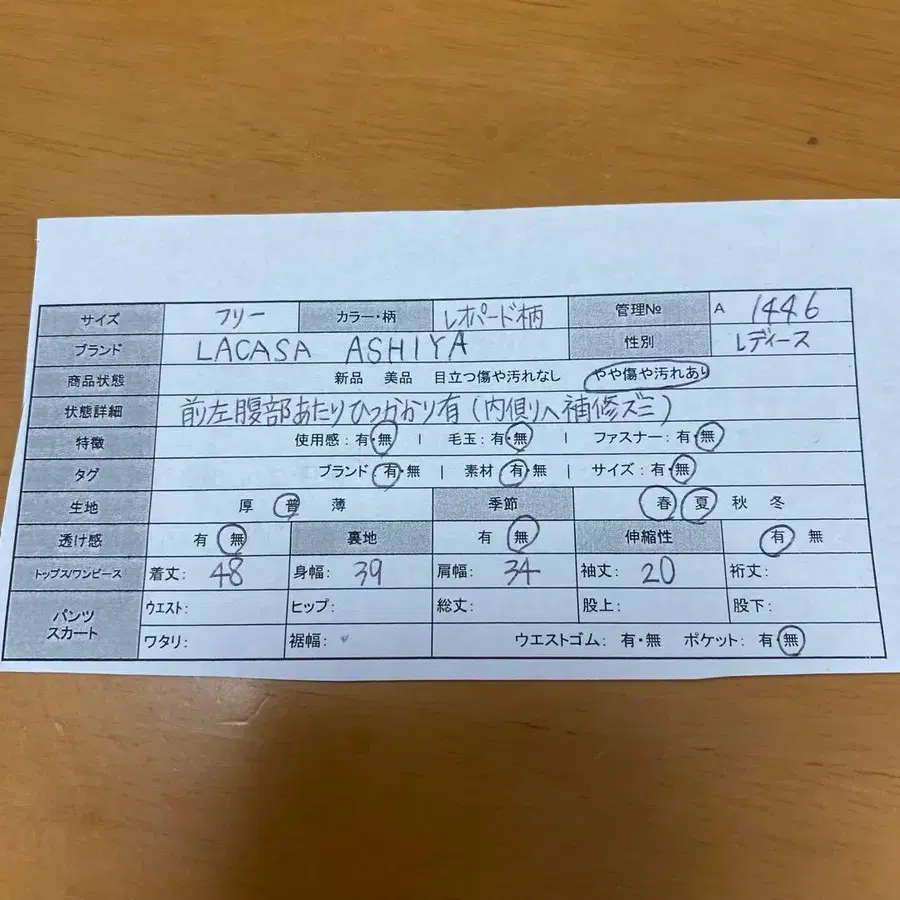 サイズ フリー カラー・柄 レオパード柄 管理№ A 1446
ブランド LACASA ASHIYA 性別 レディース
商品状態 新品 美品 目立つ傷や汚れなし やや傷や汚れあり
状態詳細 前左腹部あたりひっかかり有(内側り補修ズミ)
特徴 使用感:有・無 | 毛玉:有・無 | ファスナー:有・無
タグ ブランド 有・無 | 素材:有・無 | サイズ:有・無
生地 厚 普 薄 季節 春 夏 秋 冬
透け感 有 無 裏地 有 無 伸縮性 有 無
トップス/ワンピース 着丈: 48 身幅: 39 肩幅: 34 袖丈: 20 裄丈:
パンツ スカート ウエスト: ヒップ: 総丈: 股上: 股下:
ワタリ: 裾幅: ウエストゴム: 有・無 ポケット: 有・無